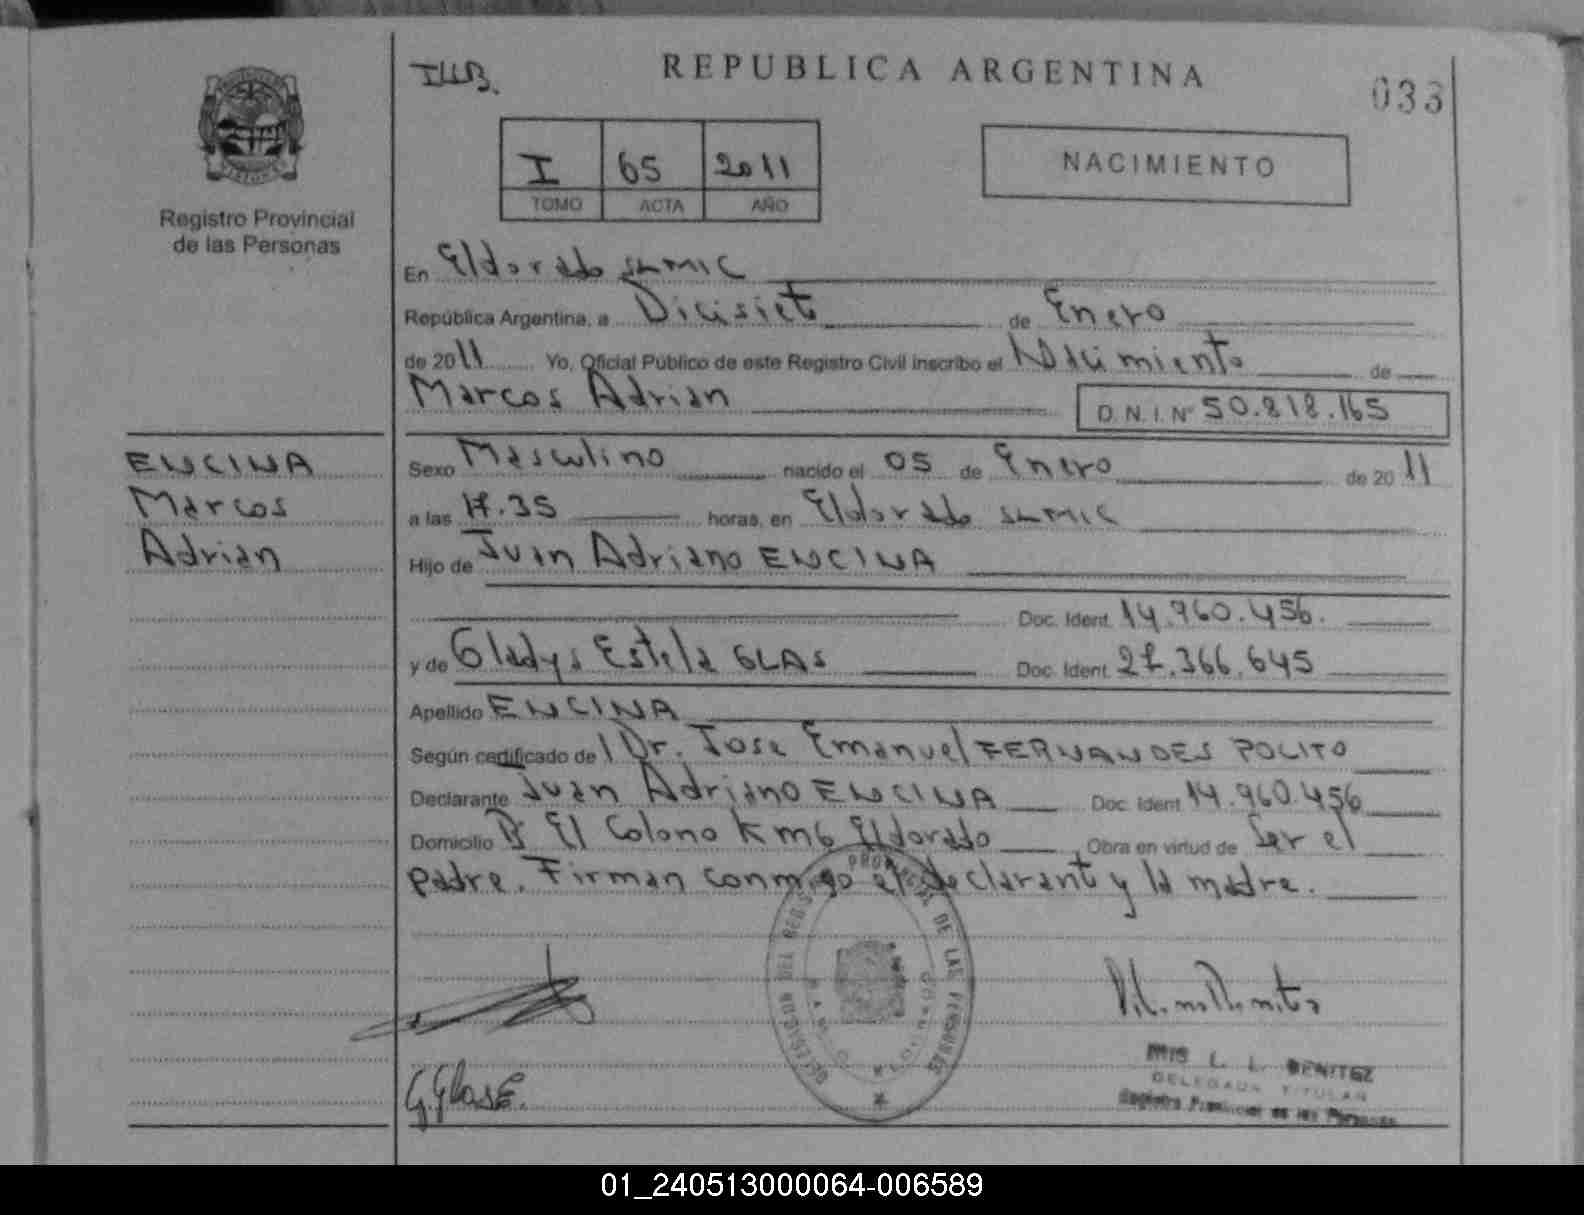 REPUBLICA ARGENTINA
033
Registro Provincial
de las Personas
I 65 2011
TOMO ACTA AÑO
NACIMIENTO
En Eldorado
República Argentina, a Dicisiete de Enero
de 2011 Yo, Oficial Público de este Registro Civil inscribo el Nacimiento de
Marcos Adrian D.N.I. Nº 50.818.165
ENCINA
Marcos
Adrian
Sexo Masculino nacido el 05 de Enero de 2011
a las 17.35 horas, en Eldorado
Hijo de Juan Adriano ENCINA
Doc. Ident. 14.960.456.
y de Gladys Estela GLAS Doc. Ident. 27.366.645
Apellido ENCINA
Según certificado del Dr. Jose Emanuel FERNANDES POLITO
Declarante Juan Adriano ENCINA Doc. Ident 14.960.456
Domicilio Bº El Colono Km6 Eldorado Obra en virtud de Ser el
padre. Firman conmigo el declarante y la madre.
DELEGACION DEL REGISTRO PROVINCIAL DE LAS PERSONAS
ELDORADO
G Glas E.
L. L. BENITEZ
DELEGADA TITULAR
Registro Provincial de las Personas
01_240513000064-006589